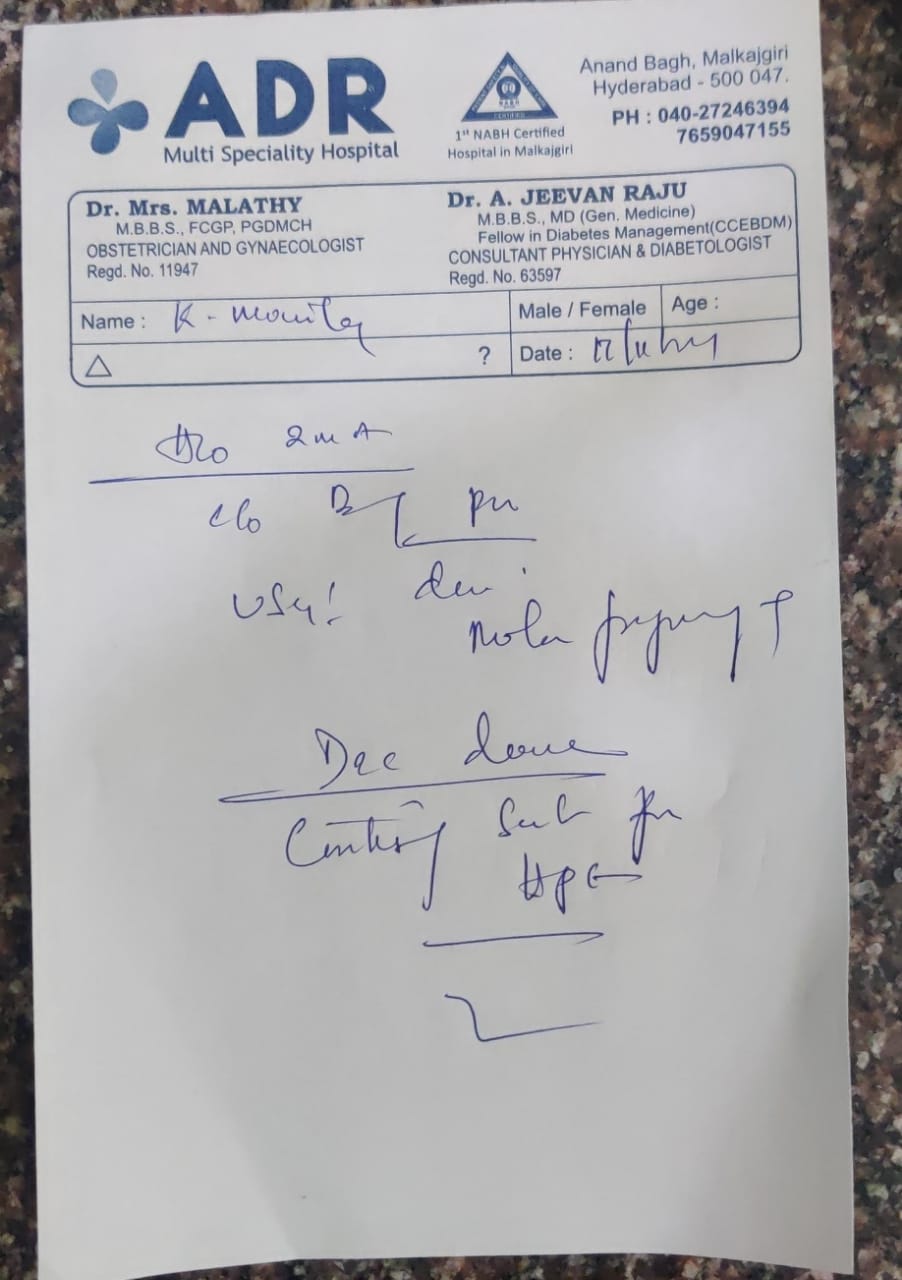 ADR
Multi Speciality Hospital
NABH
CERTIFIED
1st NABH Certified
Hospital in Malkajgiri
Anand Bagh, Malkajgiri
Hyderabad - 500 047.
PH : 040-27246394
7659047155
Dr. Mrs. MALATHY
M.B.B.S., FCGP, PGDMCH
OBSTETRICIAN AND GYNAECOLOGIST
Regd. No. 11947
Dr. A. JEEVAN RAJU
M.B.B.S., MD (Gen. Medicine)
Fellow in Diabetes Management(CCEBDM)
CONSULTANT PHYSICIAN & DIABETOLOGIST
Regd. No. 63597
Name : K -
Male / Female
Age :
△ ?
Date :
H/o 2 m A
c/o
USG:
Molar pregnancy
D&C done
Sent for
HPE